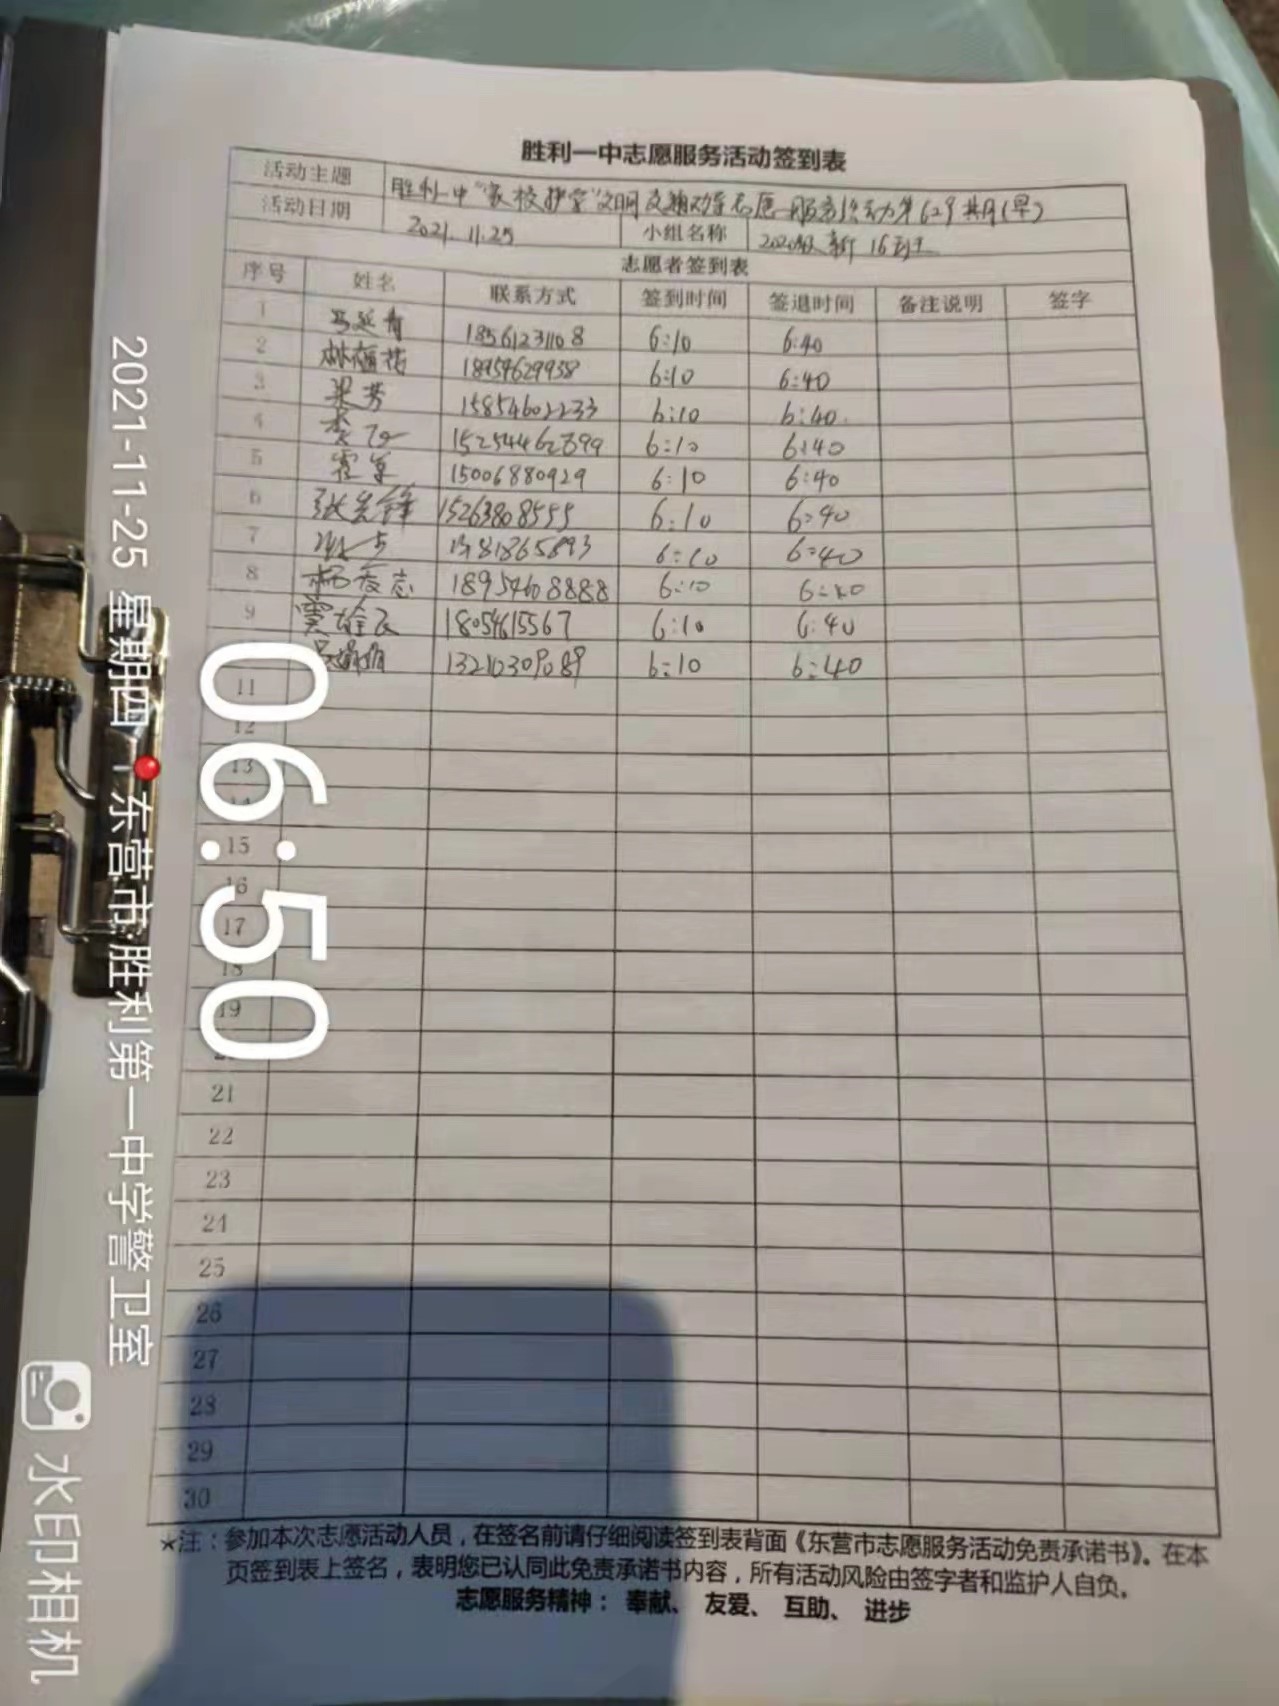 胜利一中志愿服务活动签到表
活动主题 胜利一中"家校护学"文明交通劝导志愿服务活动第629期(早)
活动日期 2021.11.25 小组名称 2020级新16班
志愿者签到表
序号 姓名 联系方式 签到时间 签退时间 备注说明 签字
1 18561231108 6:10 6:40
2 18954629938 6:10 6:40
3 梁芳 15854602233 6:10 6:40
4 6:10 6:40
5 霍军 15006880929 6:10 6:40
6 张先锋 15263808555 6:10 6:40
7 6:10 6:40
8 杨友志 18954608888 6:10 6:40
9 18054615567 6:10 6:40
13210309089 6:10 6:40
11
12
13
14
15
16
17
18
19
21
22
23
24
25
26
27
28
29
30
*注：参加本次志愿活动人员，在签名前请仔细阅读签到表背面《东营市志愿服务活动免责承诺书》。在本
页签到表上签名，表明您已认同此免责承诺书内容，所有活动风险由签字者和监护人自负。
志愿服务精神： 奉献、 友爱、 互助、 进步
06:50
2021-11-25 星期四 东营市·胜利第一中学警卫室
水印相机